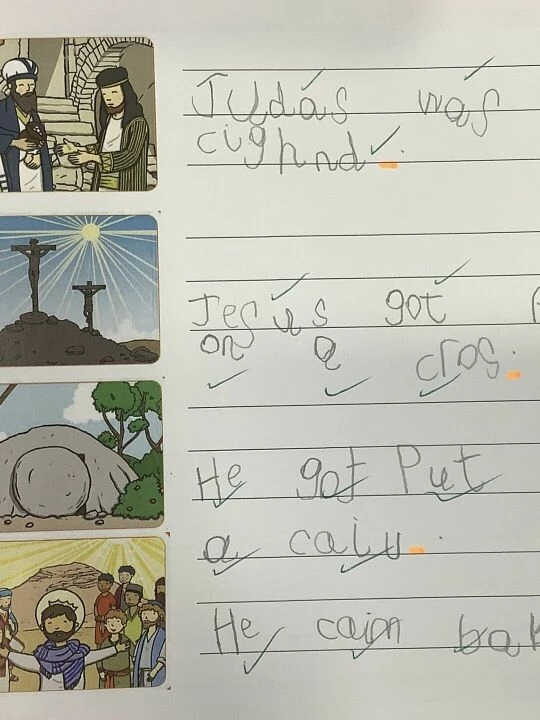 Judas was
cighnd.
Jesus got
on a cros.
He got Put
a caiu.
He caion bak